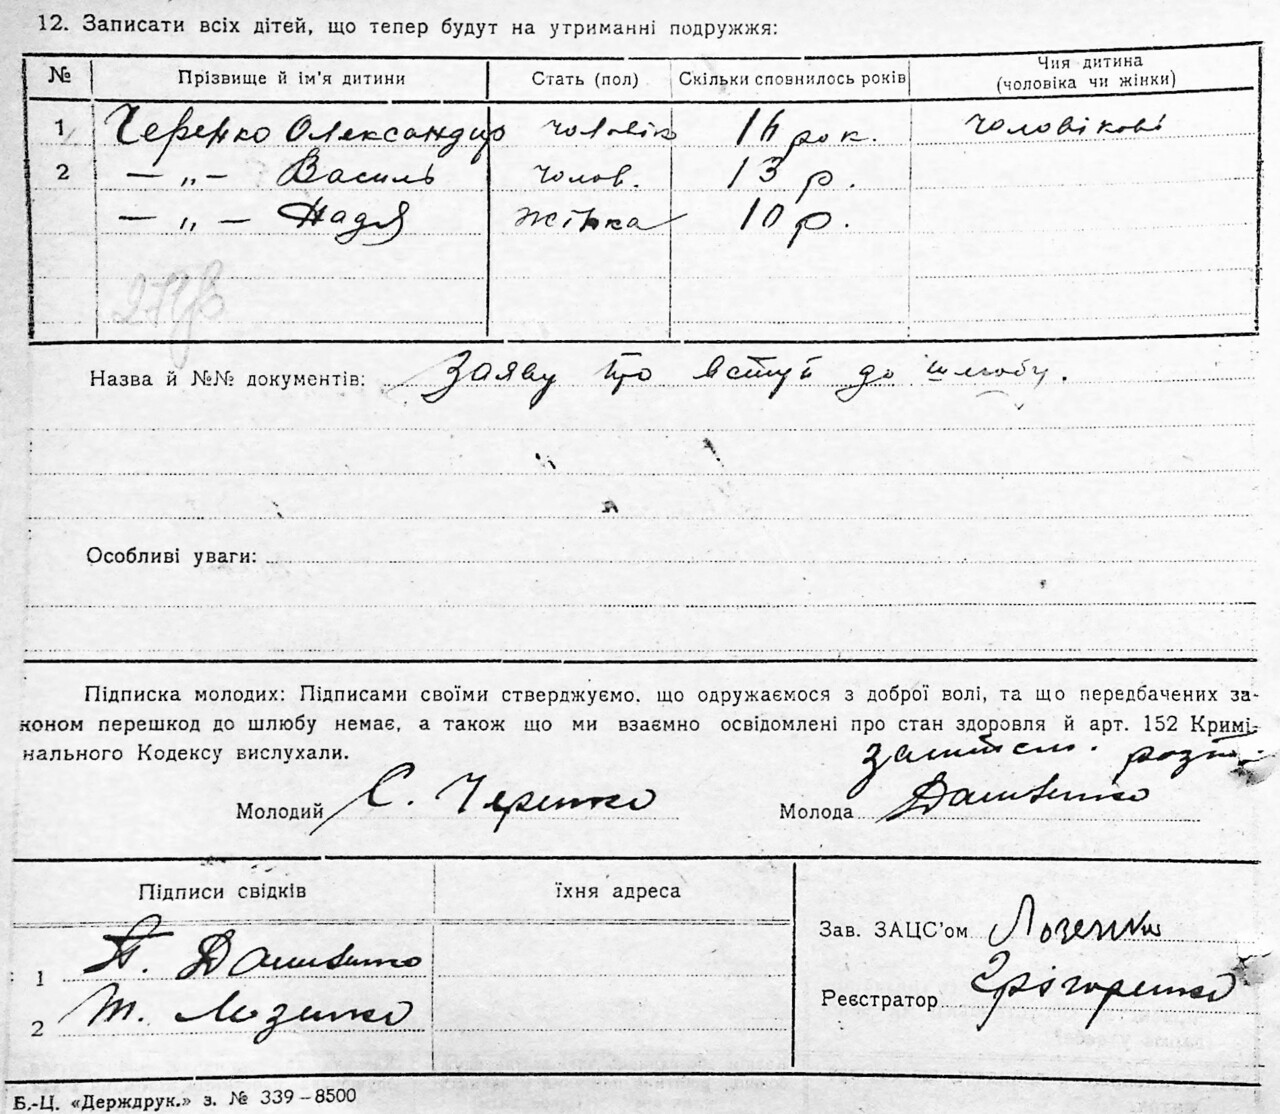 12. Записати всіх дітей, що тепер будут на утриманні подружжя:
№ Прізвище й ім'я дитини Стать (пол) Скільки сповнилось років Чия дитина (чоловіка чи жінки)
1 Черенко Олександир чоловік 16 рок. чоловікові
2 — „ — Василь чолов. 13 р.
— „ — Надя жінка 10 р.
Назва й №№ документів: Заяву про вступ до шлюбу.
Особливі уваги:
Підписка молодих: Підписами своїми стверджуємо, що одружаємося з доброї волі, та що передбачених за-
коном перешкод до шлюбу немає, а також що ми взаємно освідомлені про стан здоровля й арт. 152 Кримі-
нального Кодексу вислухали.
Молодий С. Черенко Молода
Підписи свідків Їхня адреса
Зав. ЗАЦС'ом
1
Реєстратор Грігоренко
2
Б.-Ц. «Держдрук.» з. № 339–8500